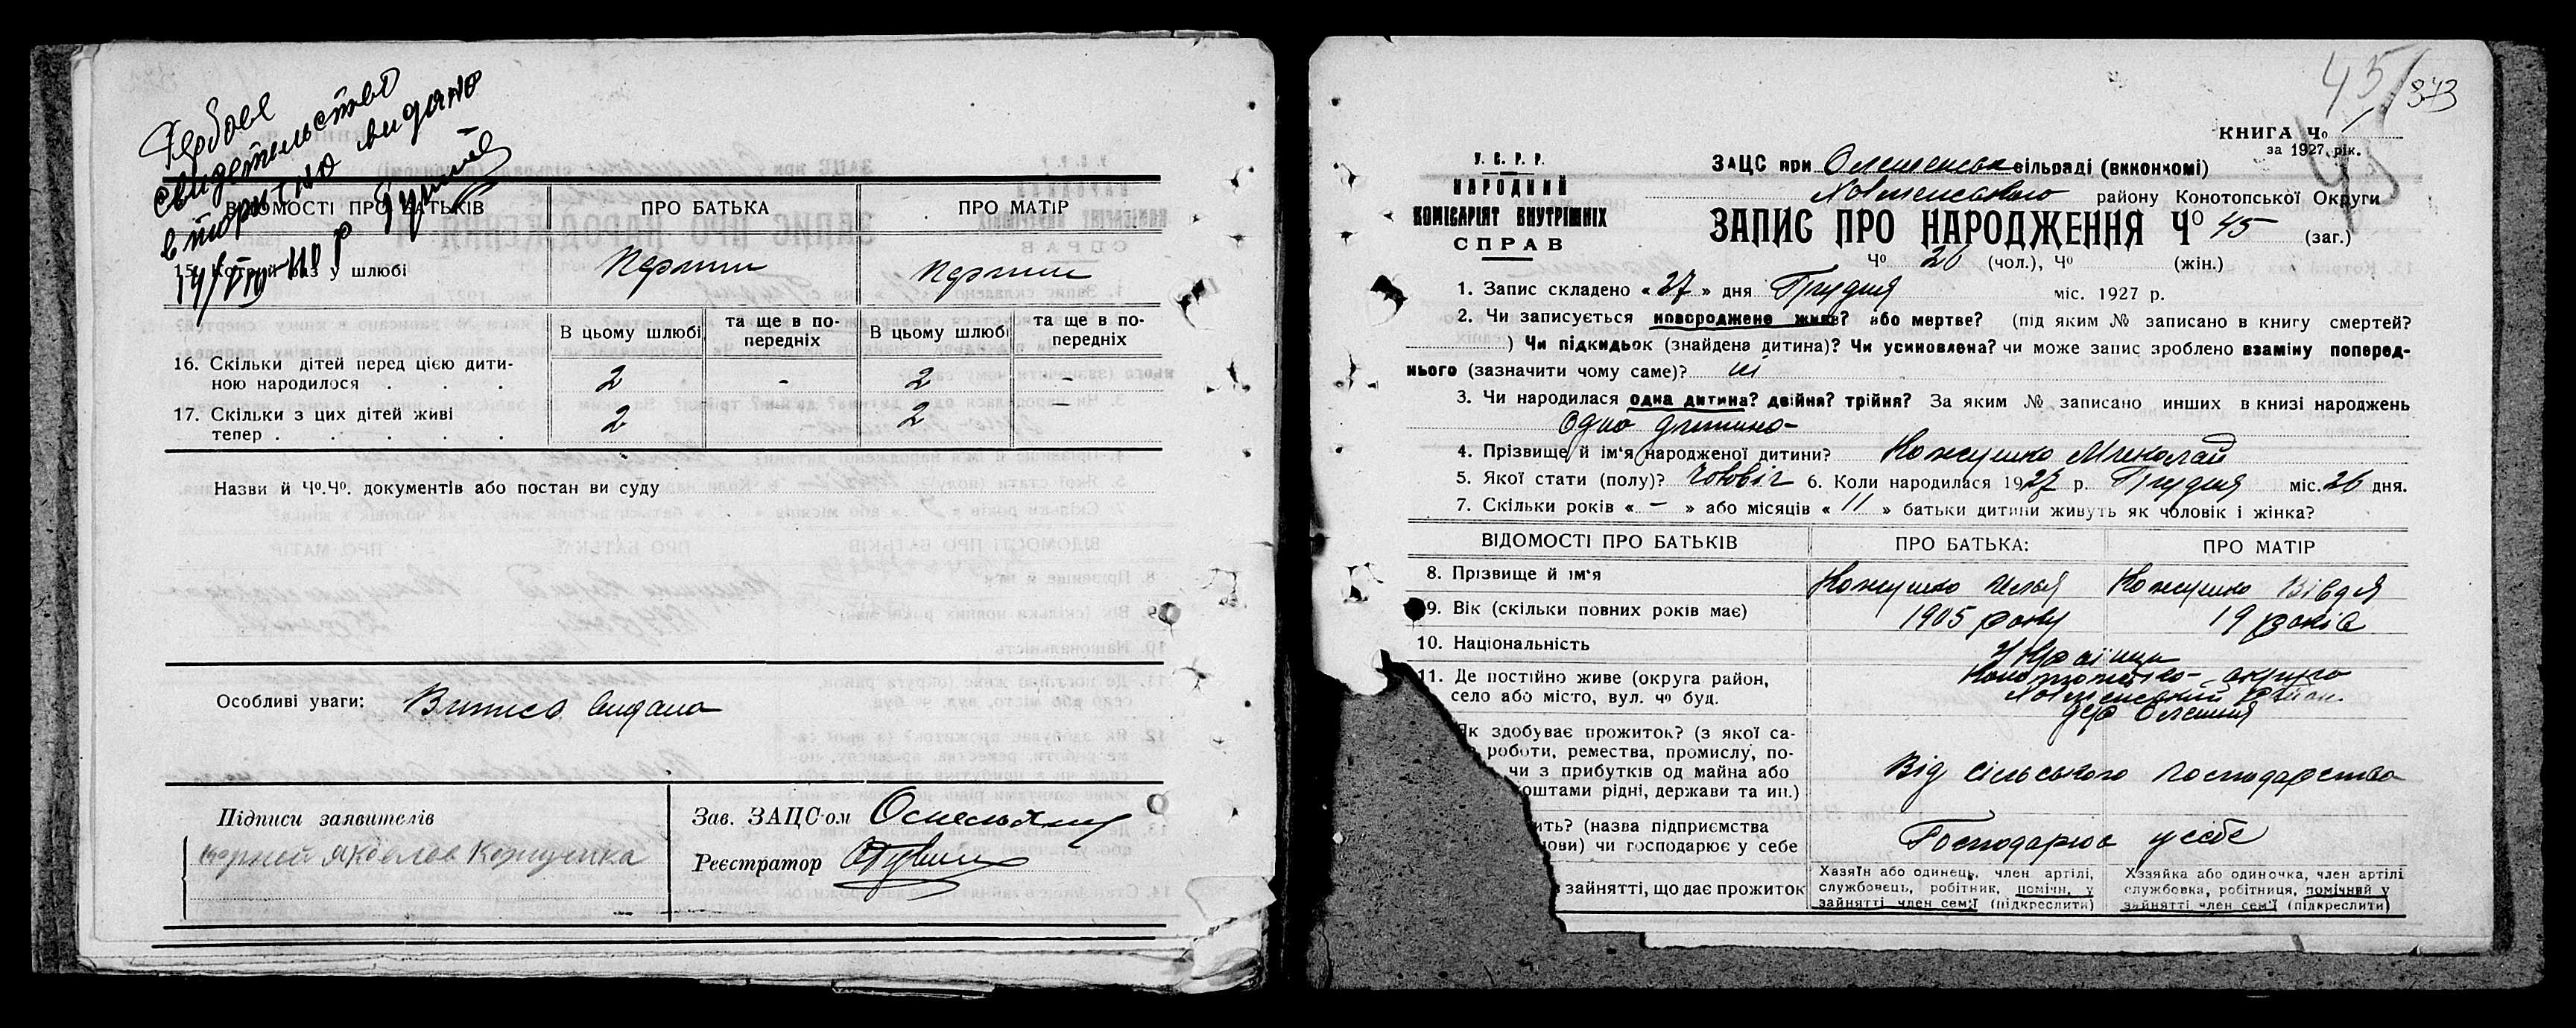 Гербове
свидетельство
вторично видано
14/VIII-40 р
ВІДОМОСТІ ПРО БАТЬКІВ ПРО БАТЬКА ПРО МАТІР
15. Котрий раз у шлюбі Перший Перший
В цьому шлюбі та ще в по- В цьому шлюбі та ще в по-
передніх передніх
16. Скільки дітей перед цією дити-
ною народилося . . . 2 - 2 -
17. Скільки з цих дітей живі
тепер . . . . . 2 2 -
Назви й Чо.Чо. документів або постан ви суду
Особливі уваги: Витяг видано
Підписи заявителів Зав. ЗАЦС-ом
Яковлев Кожушка
Реєстратор
45/373
КНИГА Чо 1
за 1927 рік.
45
У. С. Р. Р.
НАРОДНИЙ
КОМІСАРІЯТ ВНУТРІШНІХ
СПРАВ
ЗАЦС при Олешенськ сільраді (виконкомі)
Хотменського району Конотопської Округи
ЗАПИС ПРО НАРОДЖЕННЯ Чо 45 (заг.)
Чо 26 (чол.), Чо (жін.)
1. Запис складено « 27 » дня Грудня міс. 1927 р.
2. Чи записується новороджене живе? або мертве? (під яким № записано в книгу смертей?
) Чи підкидьок (знайдена дитина)? Чи усиновлена? чи може запис зроблено взаміну поперед-
нього (зазначити чому саме)? ні
3. Чи народилася одна дитина? двійня? трійня? За яким № записано инших в книзі народжень
Одна дитина-
4. Прізвище й ім'я народженої дитини? Кожушко Миколай
5. Якої стати (полу)? Чоловіч 6. Коли народилася 1927 р. Грудня міс. 26 дня.
7. Скільки років « - » або місяців « 11 » батьки дитини живуть як чоловік і жінка?
ВІДОМОСТІ ПРО БАТЬКІВ ПРО БАТЬКА: ПРО МАТІР
8. Прізвище й ім'я Кожушко Илья Кожушко Вівдя
9. Вік (скільки повних років має) 1905 року 19 років
10. Національність Українці
11. Де постійно живе (округа район, Конотопська округа
село або місто, вул. чо буд. Хотменский район.
дер Олешня
Як здобуває прожиток? (з якої са-
роботи, ремества, промислу, по-
чи з прибутків од майна або Від сільського господарства
коштами рідні, держави та ин.)
ить? (назва підприємства
нови) чи господарює у себе Господарює у себе
зайнятті, що дає прожиток
Хазяїн або одинець, член артілі, службовець, робітник, помічн. у зайнятті член сем'ї (підкреслити)
Хазяйка або одиночка, член артілі службовка, робітниця, помічний у зайнятті член сем'ї (підкреслити)